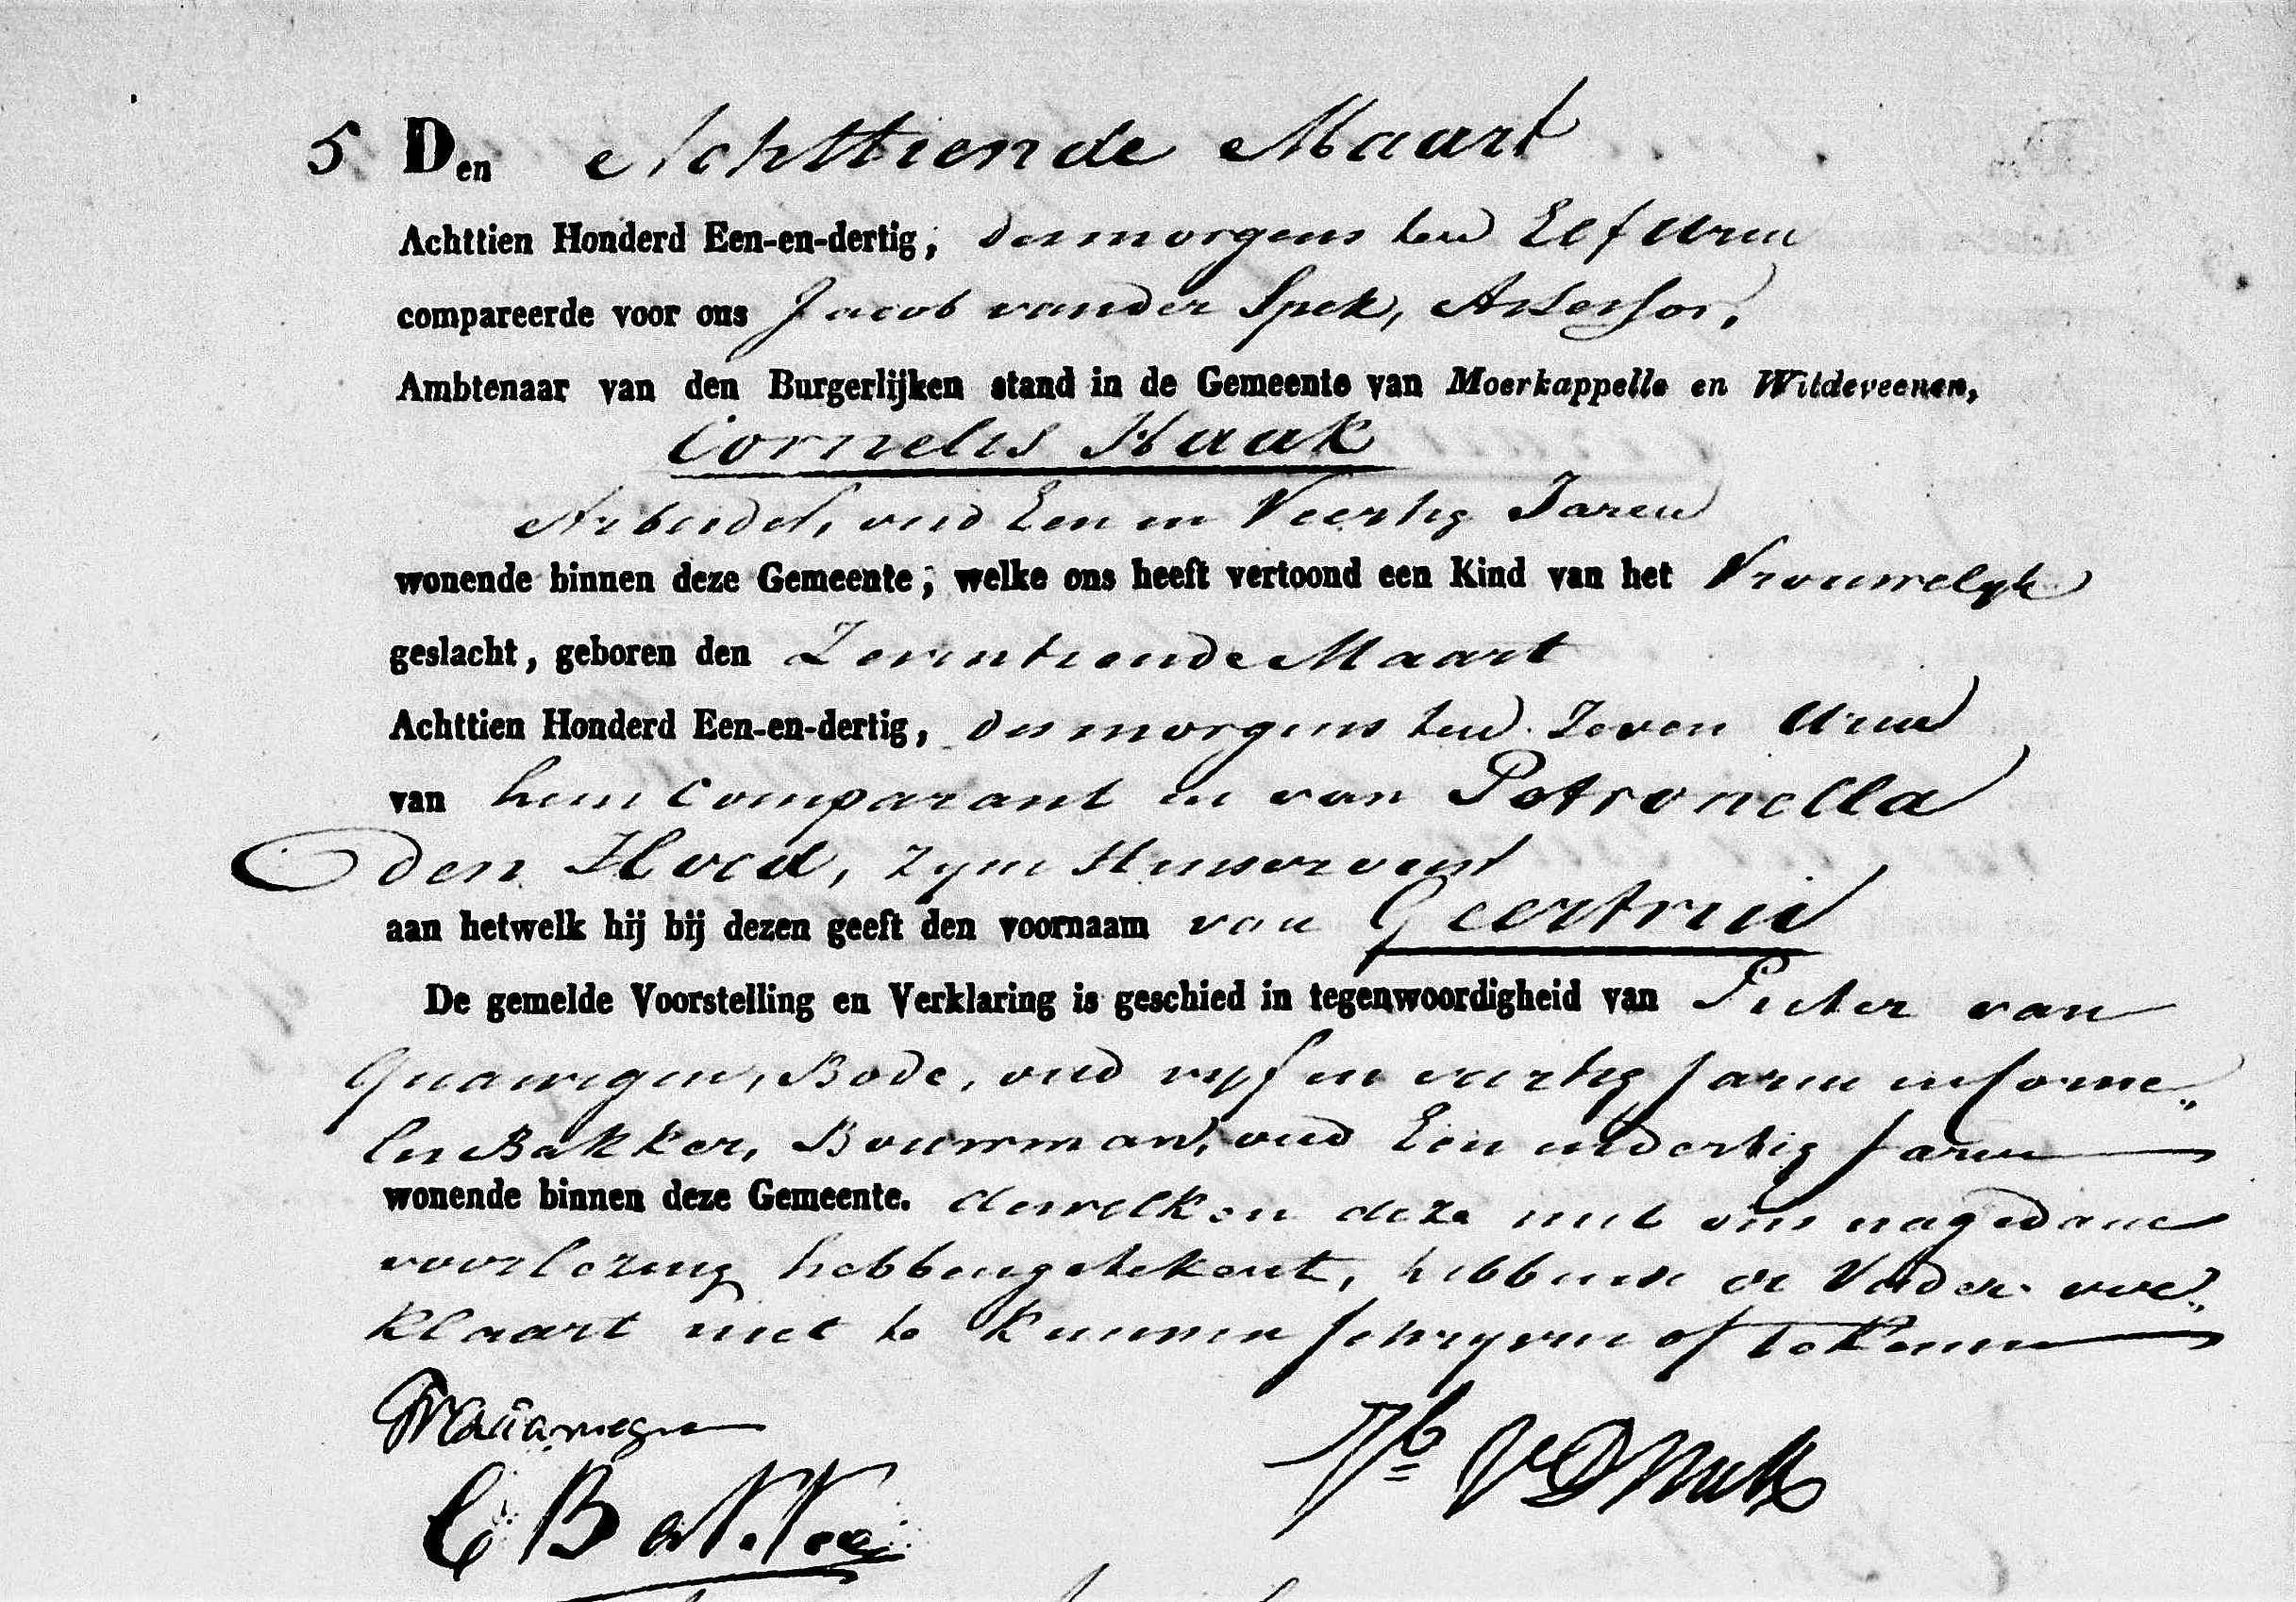 5. Den Achttiende Maart
Achttien Honderd Een-en-dertig; des morgens ten Elf Uren
compareerde voor ons Jacob van der Spek, Assessor,
Ambtenaar van den Burgerlijken stand in de Gemeente van Moerkappelle en Wildeveenen,
Cornelis Haak
Arbeider, oud Een en Veertig Jaren
wonende binnen deze Gemeente; welke ons heeft vertoond een Kind van het Vrouwelyk
geslacht, geboren den Zeventiende Maart
Achttien Honderd Een-en-dertig, des morgens ten Zeven Uren
van hem Comparant en van Petronella
den Hoed, zyne Huisvrouw
aan hetwelk hij bij dezen geeft den voornaam van Geertrui
De gemelde Voorstelling en Verklaring is geschied in tegenwoordigheid van Pieter van
Gaamegen, Bode, oud vyf en veertig Jaren en Corne„
lis Bakker, Bouwman, oud Een en dertig Jaren
wonende binnen deze Gemeente. dewelken deze met ons na gedane
voorlezing hebben getekent, hebbende de Vader ver„
klaart niet te kunnen schryven of tekenen
C Bakker
Jb VD Spek